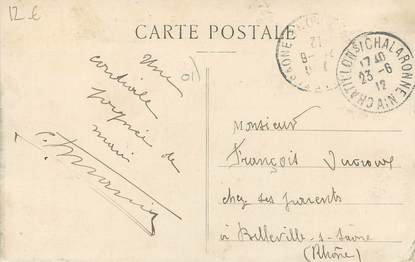 12 €
CARTE POSTALE
01)
CHATILLON S/ CHALARONNE
17 40
23-6
12
AIN
Une
cordiale
poignée de
main
Monsieur
François
chez ses parents
à Belleville-s-Saône
(Rhône)